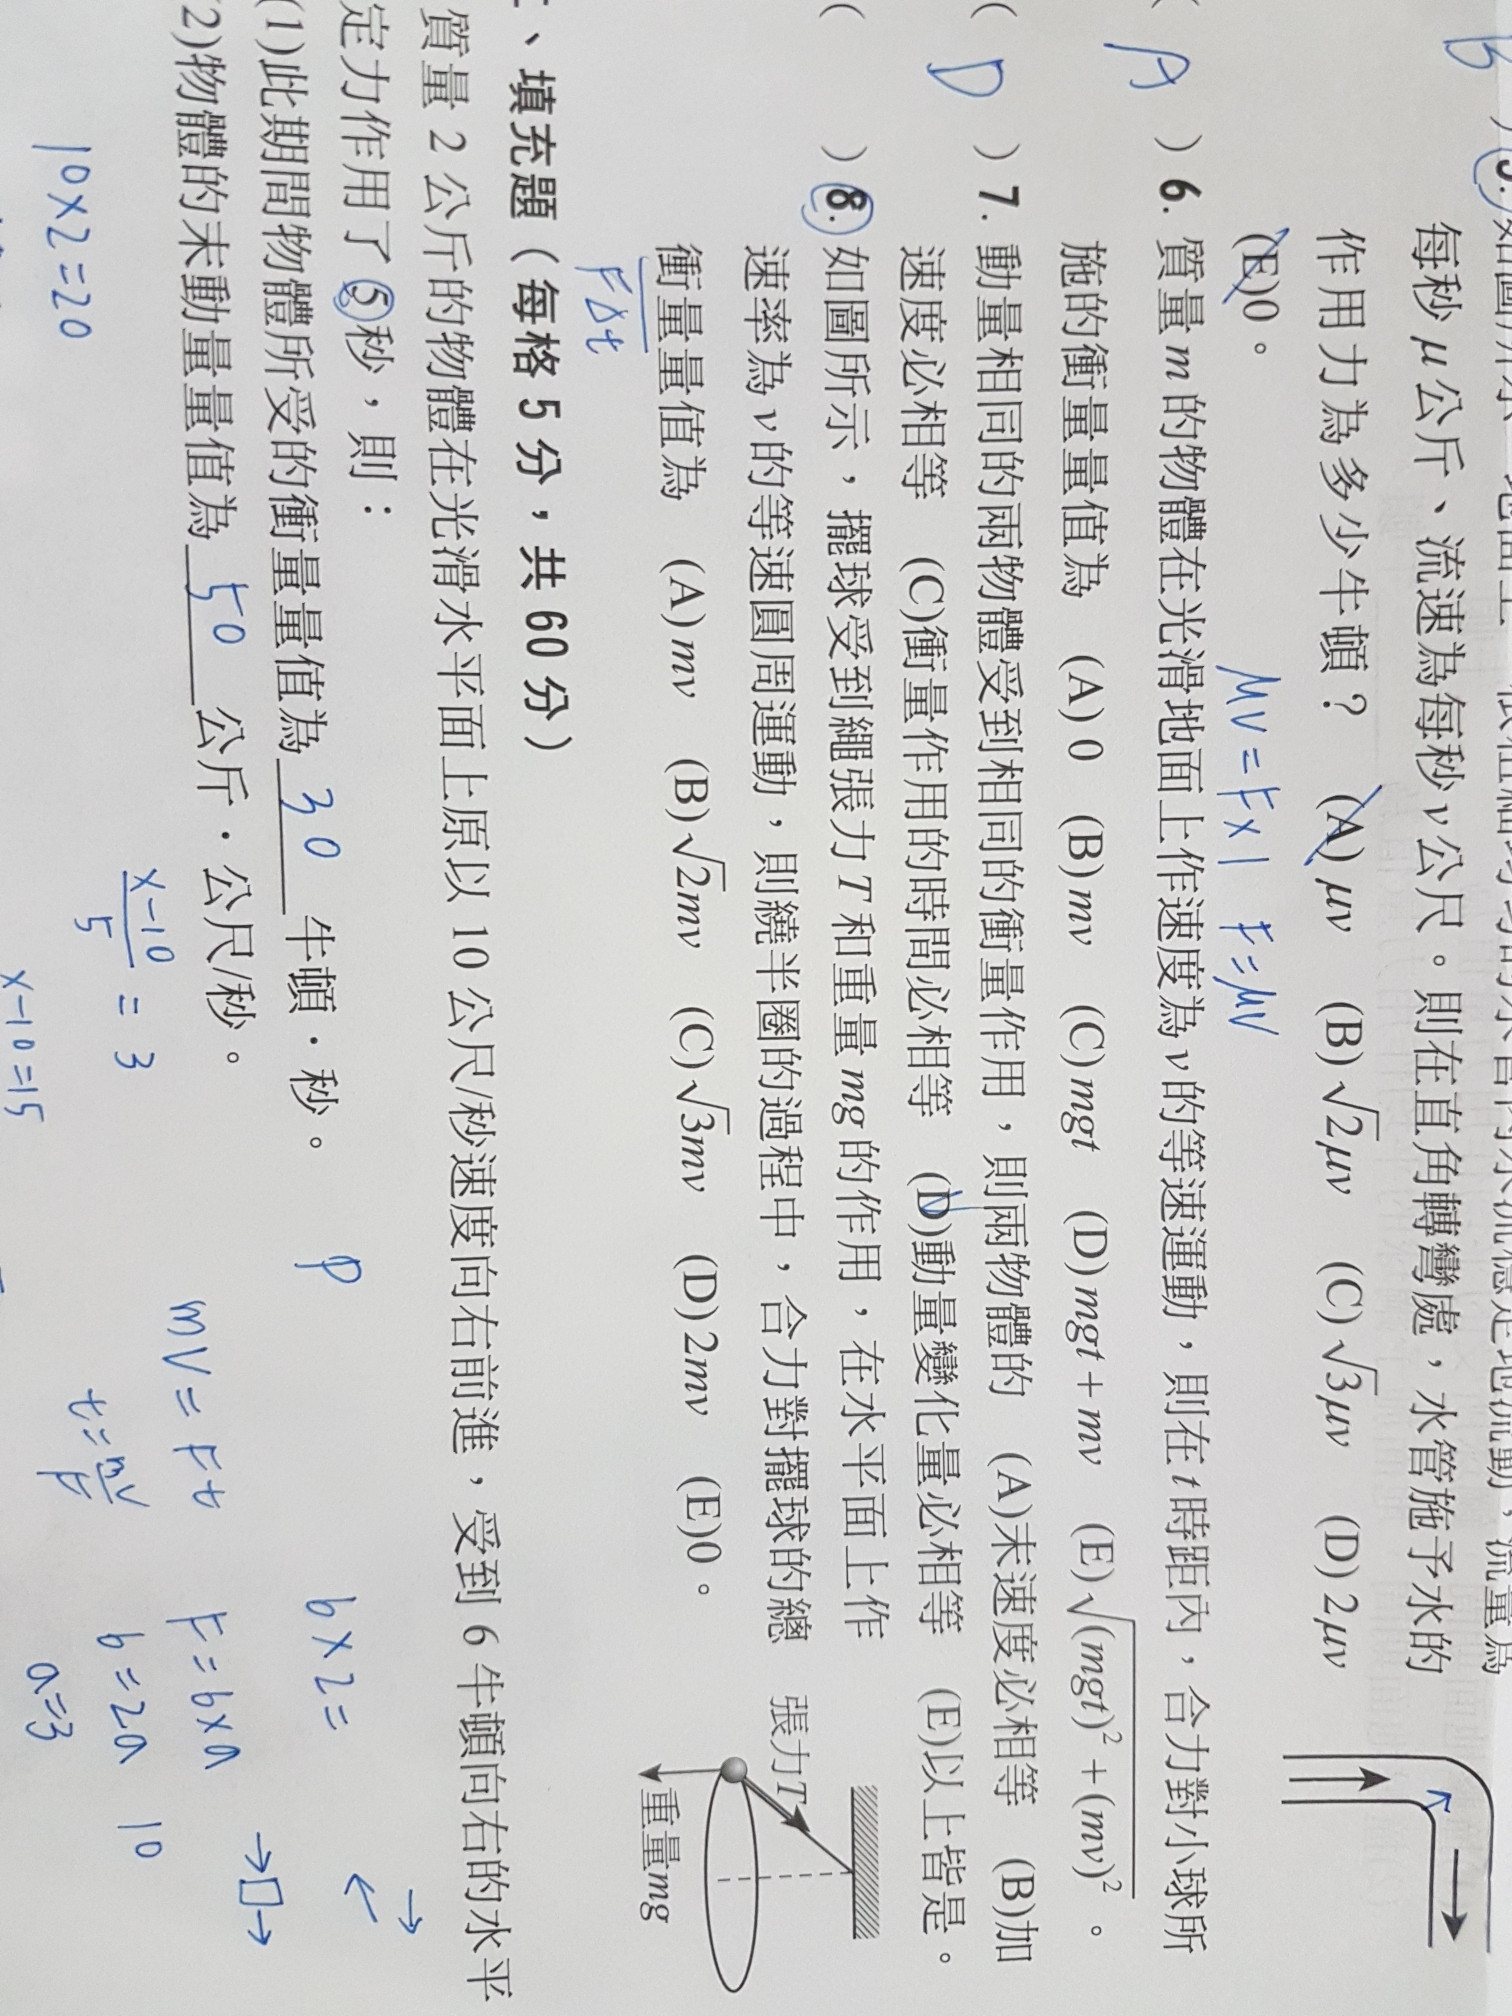 B )5.如圖所示,地面上一根粗細均勻的水管內水流穩定地流動,流量為
每秒 μ 公斤、流速為每秒 v 公尺。則在直角轉彎處,水管施予水的
作用力為多少牛頓? (A) μv (B) √2μv (C) √3μv (D) 2μv
(E)0。
μv = F×1 F=μv
( A ) 6. 質量 m 的物體在光滑地面上作速度為 v 的等速運動,則在 t 時距內,合力對小球所
施的衝量量值為 (A) 0 (B) mv (C) mgt (D) mgt + mv (E) √(mgt)² + (mv)² 。
( D ) 7. 動量相同的兩物體受到相同的衝量作用,則兩物體的 (A)末速度必相等 (B)加
速度必相等 (C)衝量作用的時間必相等 (D)動量變化量必相等 (E)以上皆是。
( ) 8. 如圖所示,擺球受到繩張力 T 和重量 mg 的作用,在水平面上作
速率為 v 的等速圓周運動,則繞半圈的過程中,合力對擺球的總
衝量量值為 (A) mv (B) √2mv (C) √3mv (D) 2mv (E)0。
張力T
重量mg
FΔt
二、填充題(每格 5 分,共 60 分)
質量 2 公斤的物體在光滑水平面上原以 10 公尺/秒速度向右前進,受到 6 牛頓向右的水平
定力作用了 5 秒,則:
(1)此期間物體所受的衝量量值為 30 牛頓・秒。
(2)物體的末動量量值為 50 公斤・公尺/秒。
P
6×2=
mV = Ft
F=6×a
t=mv/F
6=2a
a=3
10
10×2=20
x-10/5 = 3
x-10=15